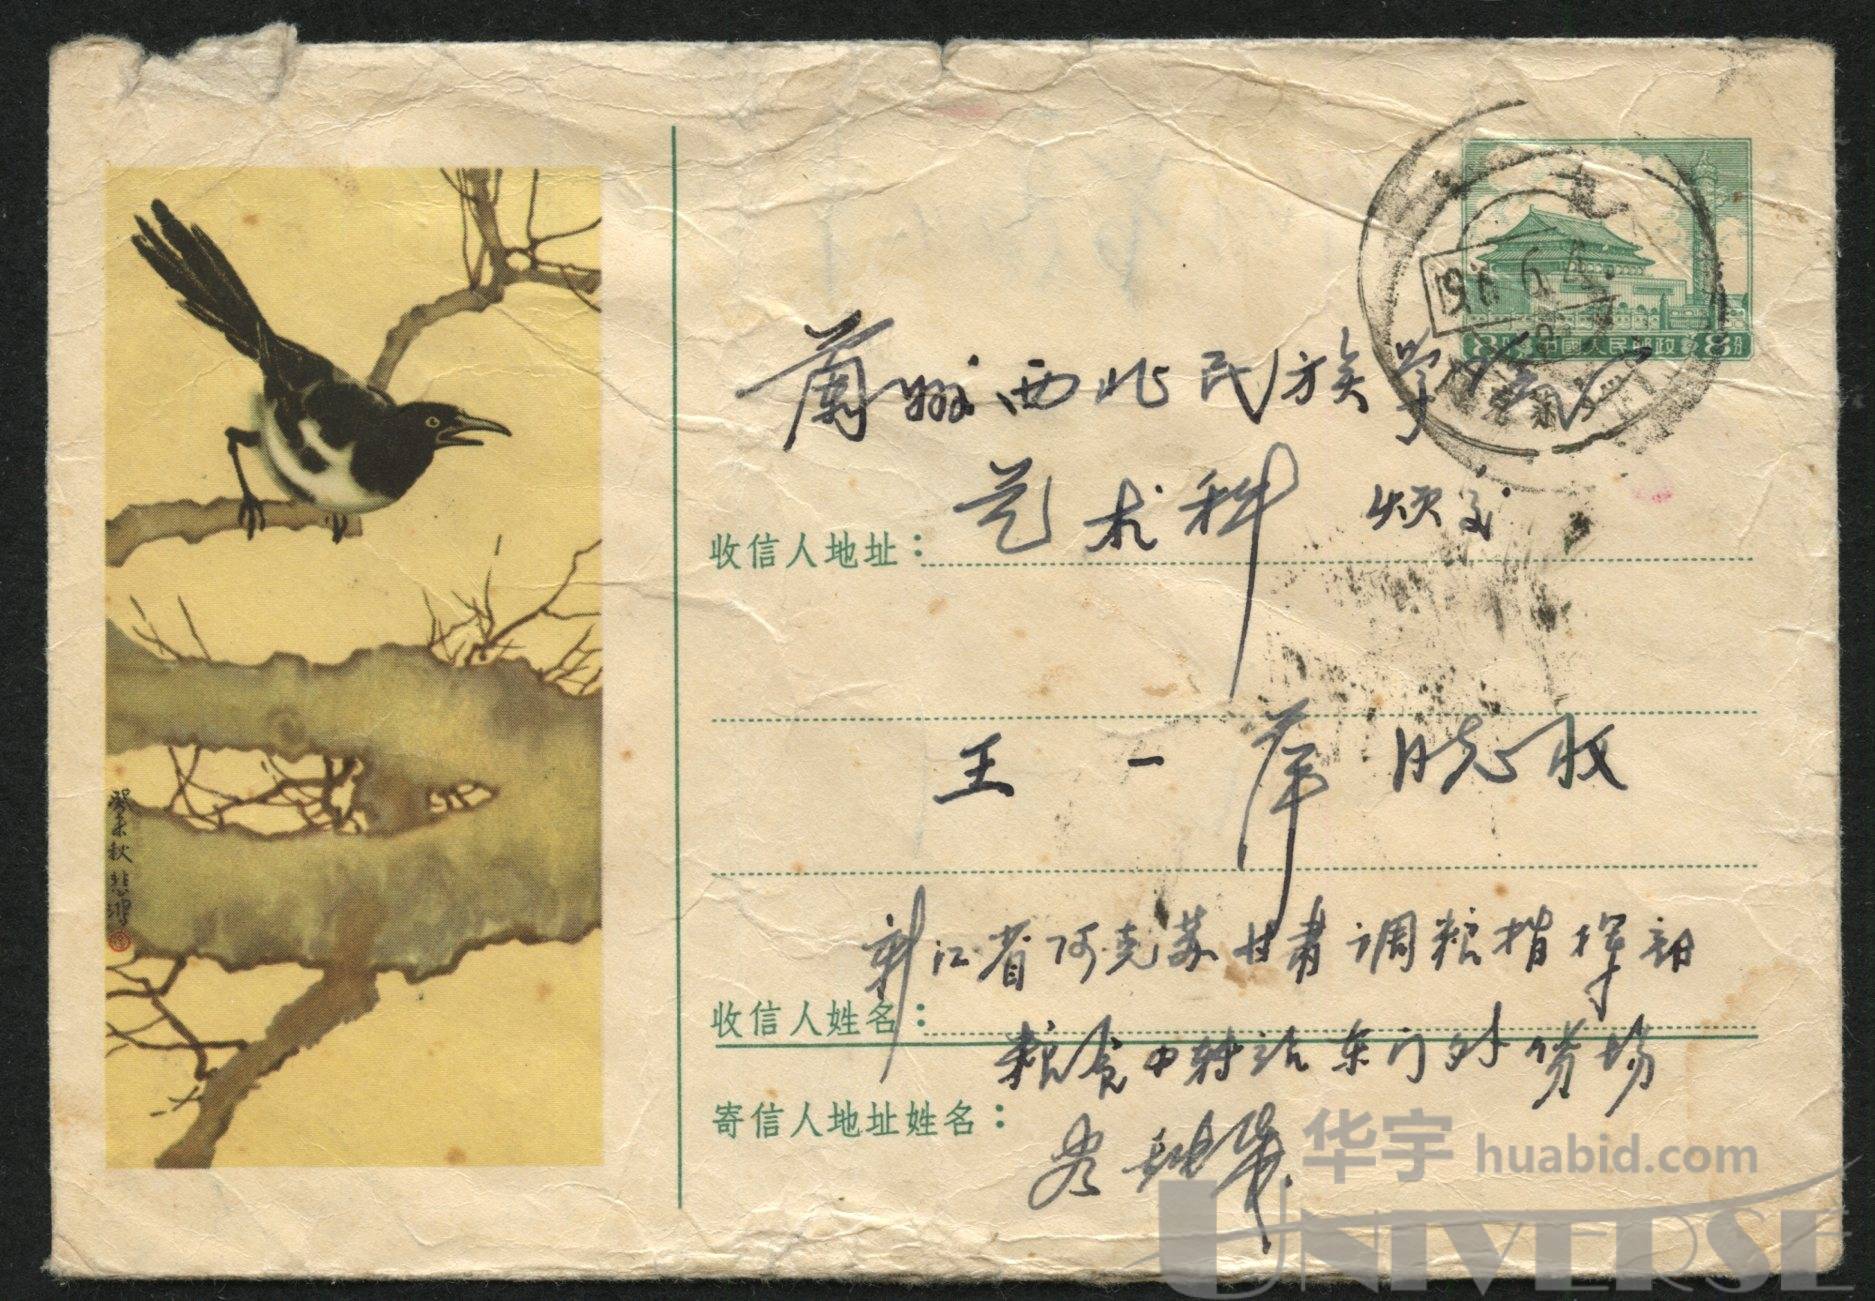 中國人民邮政
兰州西北民族学院
艺术科
收信人地址：
王一萍 同志收
新江省阿克苏甘肃调粮指挥部
收信人姓名：
粮食中转站东门外劳场
寄信人地址姓名：
癸未秋 悲鸿
华宇 huabid.com
UNIVERSE